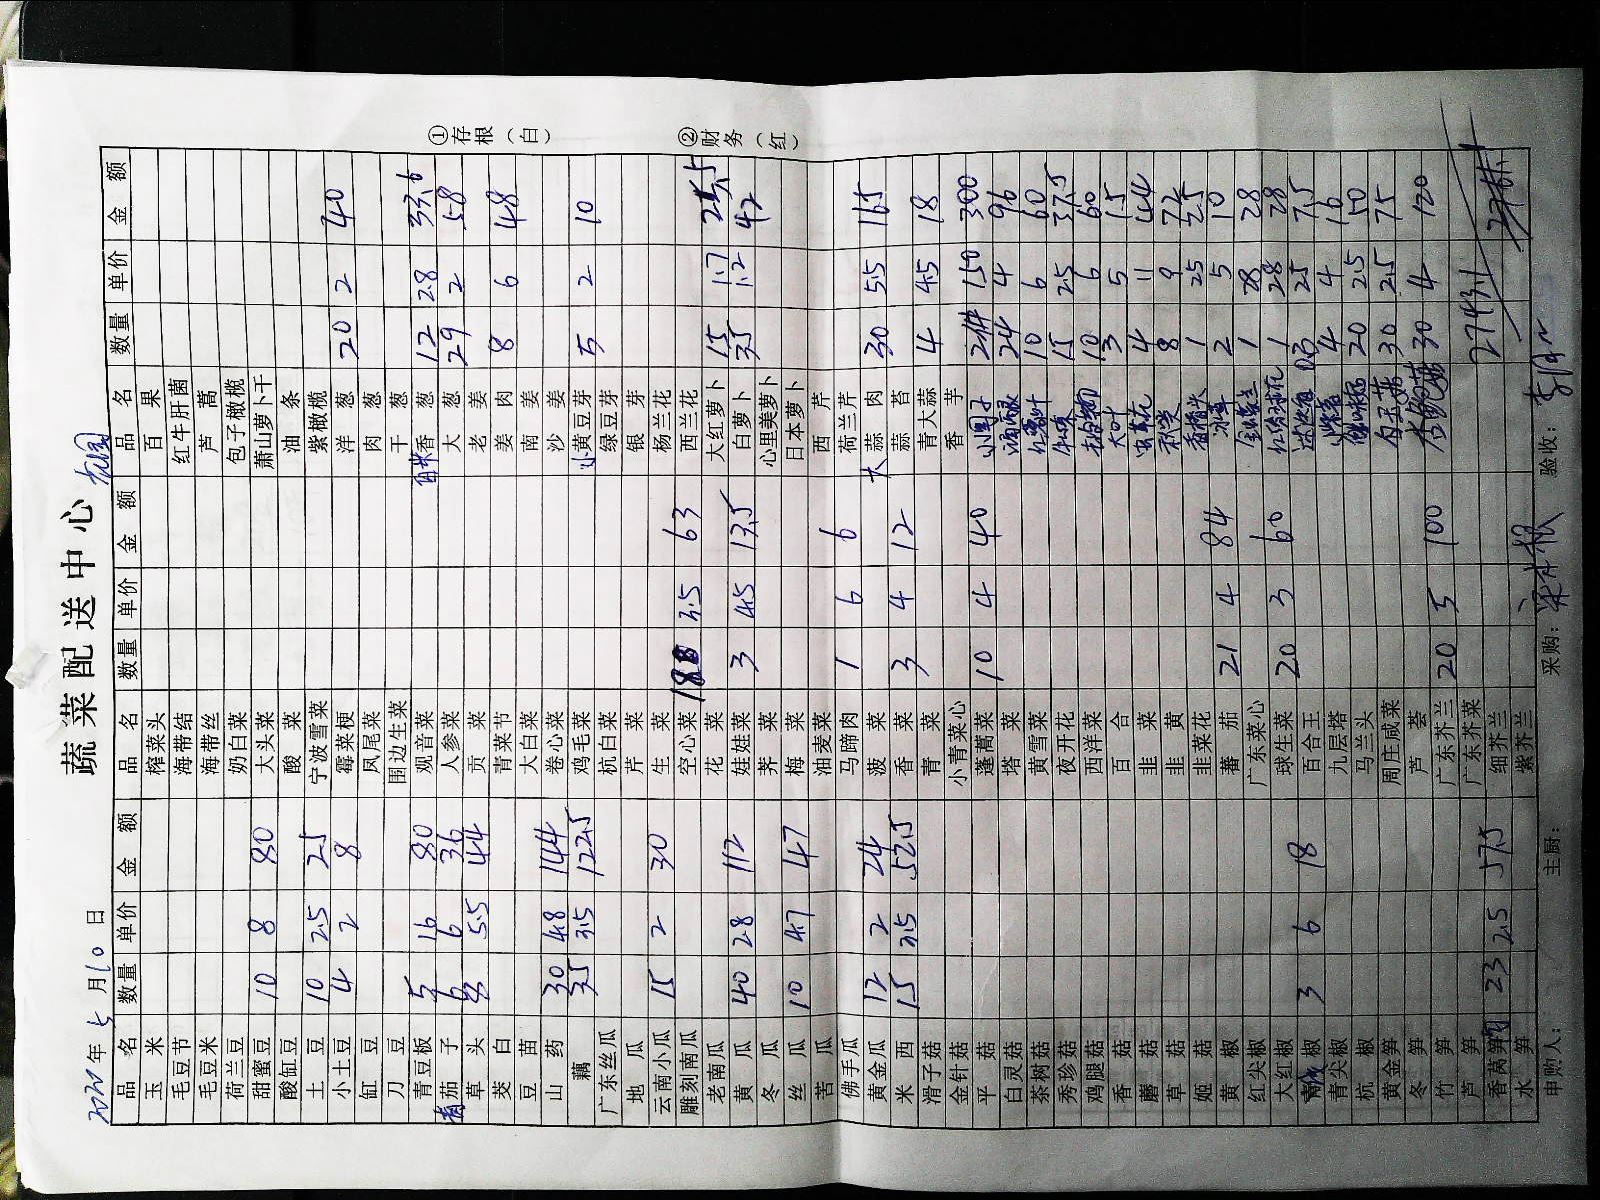 蔬菜配送中心
2021年5月10日
品名 数量 单价 金额 品名 数量 单价 金额 品名 数量 单价 金额
玉米 榨菜头 百果
毛豆节 海带结 红牛肝菌
毛豆米 海带丝 芦蒿
荷兰豆 奶白菜 包子橄榄
甜蜜豆 10 8 80 大头菜 萧山萝卜干
酸缸豆 酸菜 油条
土豆 10 2.5 25 宁波雪菜 紫橄榄
小土豆 4 2 8 霉菜梗 洋葱 20 2 40
缸豆 凤尾菜 肉葱
刀豆 围边生菜 干葱
青豆板 5 16 80 观音菜 香葱 12 2.8 33.6
茄子 6 6 36 人参菜 大葱 29 2 58
草头 8 5.5 44 贡菜 老姜
茭白 青菜节 姜肉 8 6 48
豆苗 大白菜 南姜
山药 30 4.8 144 卷心菜 沙姜
藕 35 3.5 122.5 鸡毛菜 小黄豆芽 5 2 10
广东丝瓜 杭白菜 绿豆芽
地瓜 芹菜 银芽
云南小瓜 15 2 30 生菜 杨兰花
雕刻南瓜 空心菜 18 3.5 63 西兰花
老南瓜 花菜 大红萝卜 15 1.7 25.5
黄瓜 40 2.8 112 娃娃菜 3 4.5 13.5 白萝卜 35 1.2 42
冬瓜 荠菜 心里美萝卜
丝瓜 10 4.7 47 梅菜 日本萝卜
苦瓜 油麦菜 西芹
佛手瓜 马蹄肉 1 6 6 荷兰芹
黄金瓜 12 2 24 菠菜 大蒜肉 30 5.5 165
米西 15 3.5 52.5 香菜 3 4 12 蒜苔
滑子菇 青菜 青大蒜 4 4.5 18
金针菇 小青菜心 香芋
平菇 蓬蒿菜 10 4 40 2件 150 300
白灵菇 塔菜 24 4 96
茶树菇 黄雪菜 10 6 60
秀珍菇 夜开花 15 2.5 37.5
鸡腿菇 西洋菜 10 6 60
香菇 百合 大叶 3 5 15
蘑菇 韭菜 4 11 44
草菇 韭黄 秋葵 8 9 72
姬菇 韭菜花 1 25 25
黄椒 蕃茄 21 4 84 冰草 2 5 10
红尖椒 广东菜心 1 28 28
大红椒 球生菜 20 3 60 1 28 28
椒 3 6 18 百合王 迷迭香 25 7.5
青尖椒 九层塔 4 4 16
杭椒 马兰头 20 2.5 50
黄金笋 周庄咸菜 30 2.5 75
冬笋 芦荟 30 4 120
竹笋 广东芥兰 20 5 100
芦笋 广东芥菜
香莴笋 23 2.5 57.5 细芥兰
水笋 紫芥兰
申购人： 主厨： 采购： 验收：
①存根（白）
②财务（红）